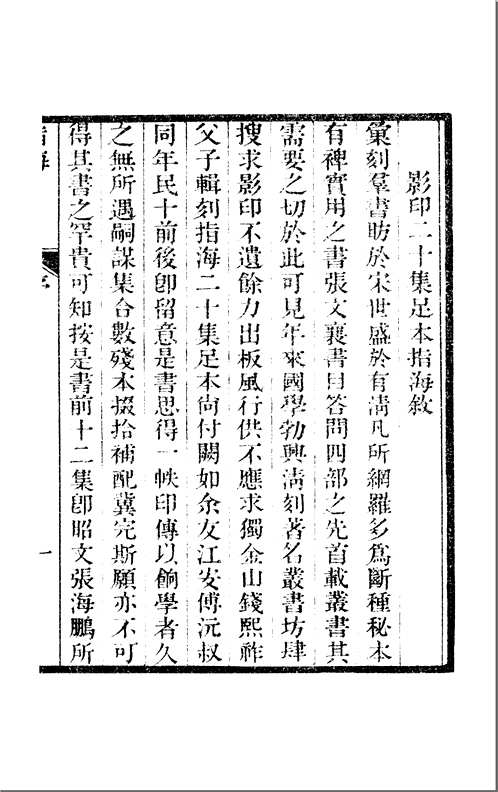 影印二十集足本指海敘
彙刻羣書昉於宋世盛於有淸凡所網羅多爲斷種秘本
有裨實用之書張文襄書目答問四部之先首載叢書其
需要之切於此可見年來國學勃興淸刻著名叢書坊肆
搜求影印不遺餘力出板風行供不應求獨金山錢熙祚
父子輯刻指海二十集足本尙付闕如余友江安傅沅叔
同年民十前後卽留意是書思得一帙印傳以餉學者久
之無所遇嗣謀集合數殘本掇拾補配冀完斯願亦不可
得其書之罕貴可知按是書前十二集卽昭文張海鵬所
指海
序
一